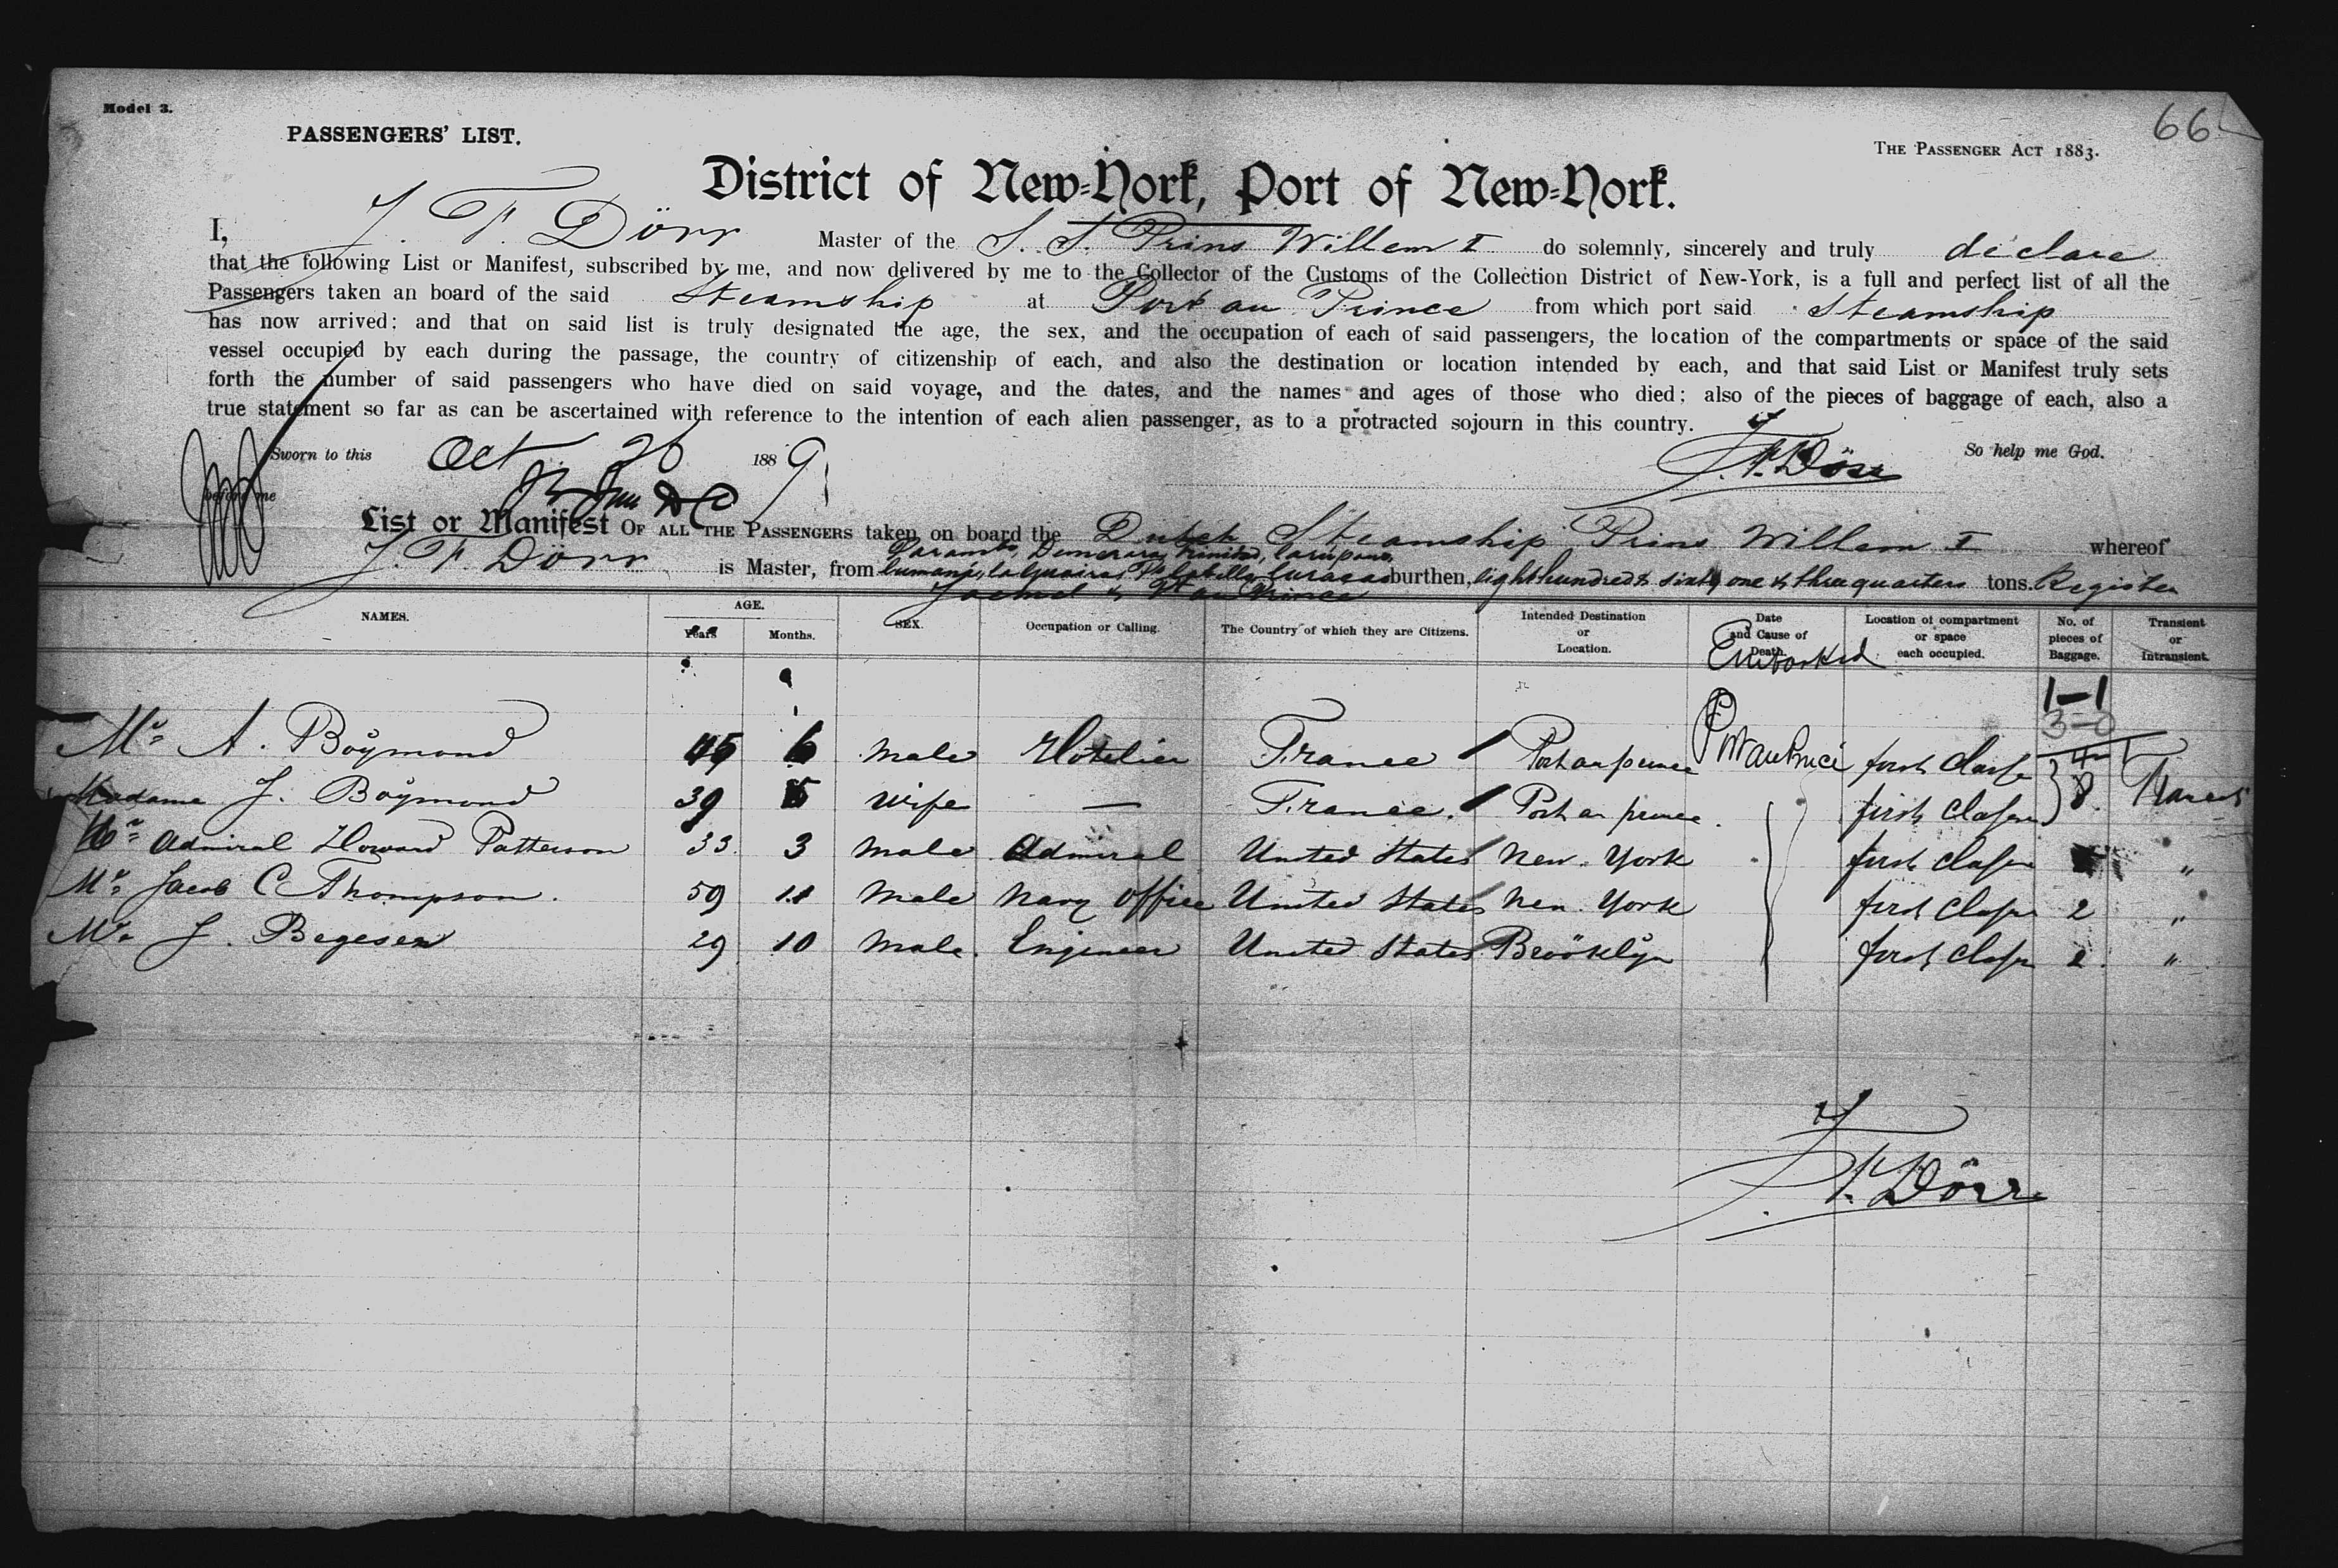 Model 3.
66
PASSENGERS' LIST.
THE PASSENGER ACT 1883.
District of New-York, Port of New-York.
I, J. F. Dörr Master of the S. S. Prins Willem I do solemnly, sincerely and truly declare
that the following List or Manifest, subscribed by me, and now delivered by me to the Collector of the Customs of the Collection District of New-York, is a full and perfect list of all the
Passengers taken an board of the said Steamship at Port au Prince from which port said Steamship
has now arrived; and that on said list is truly designated the age, the sex, and the occupation of each of said passengers, the location of the compartments or space of the said
vessel occupied by each during the passage, the country of citizenship of each, and also the destination or location intended by each, and that said List or Manifest truly sets
forth the number of said passengers who have died on said voyage, and the dates, and the names and ages of those who died; also of the pieces of baggage of each, also a
true statement so far as can be ascertained with reference to the intention of each alien passenger, as to a protracted sojourn in this country.
Sworn to this Oct 26 1889 J. F. Dörr So help me God.
before me
List or Manifest OF ALL THE PASSENGERS taken on board the Dutch Steamship Prins Willem I whereof
Demerara, Trinidad, Carupano,
J. F. Dörr is Master, from Cumaná, LaGuaira, Pto Cabello Curacao burthen, Eight hundred & sixty one & three quarters tons. Register
Jacmel & Pt au Prince
NAMES. AGE. Years Months. SEX. Occupation or Calling. The Country of which they are Citizens. Intended Destination or Location. Date and Cause of Death. Embarked Location of compartment or space each occupied. No. of pieces of Baggage. Transient or Intransient.
1-1
3-0
Mr A. Böymond 45 6 Male Hotelier France Port au prince Port au Prince first Classe 4
Madame J. Böymond 39 5 Wife — France. Port au prince. first Classe 8.
Mr Admiral Howard Patterson 33. 3 Male Admiral United States New York first Classe "
Mr Jacob C Thompson. 59 11 Male Navy Office United States New York first Classe 2 "
Mr J. Begesen 29 10 Male. Engineer United States Bröoklyn first Classe 2. "
J. F. Dörr